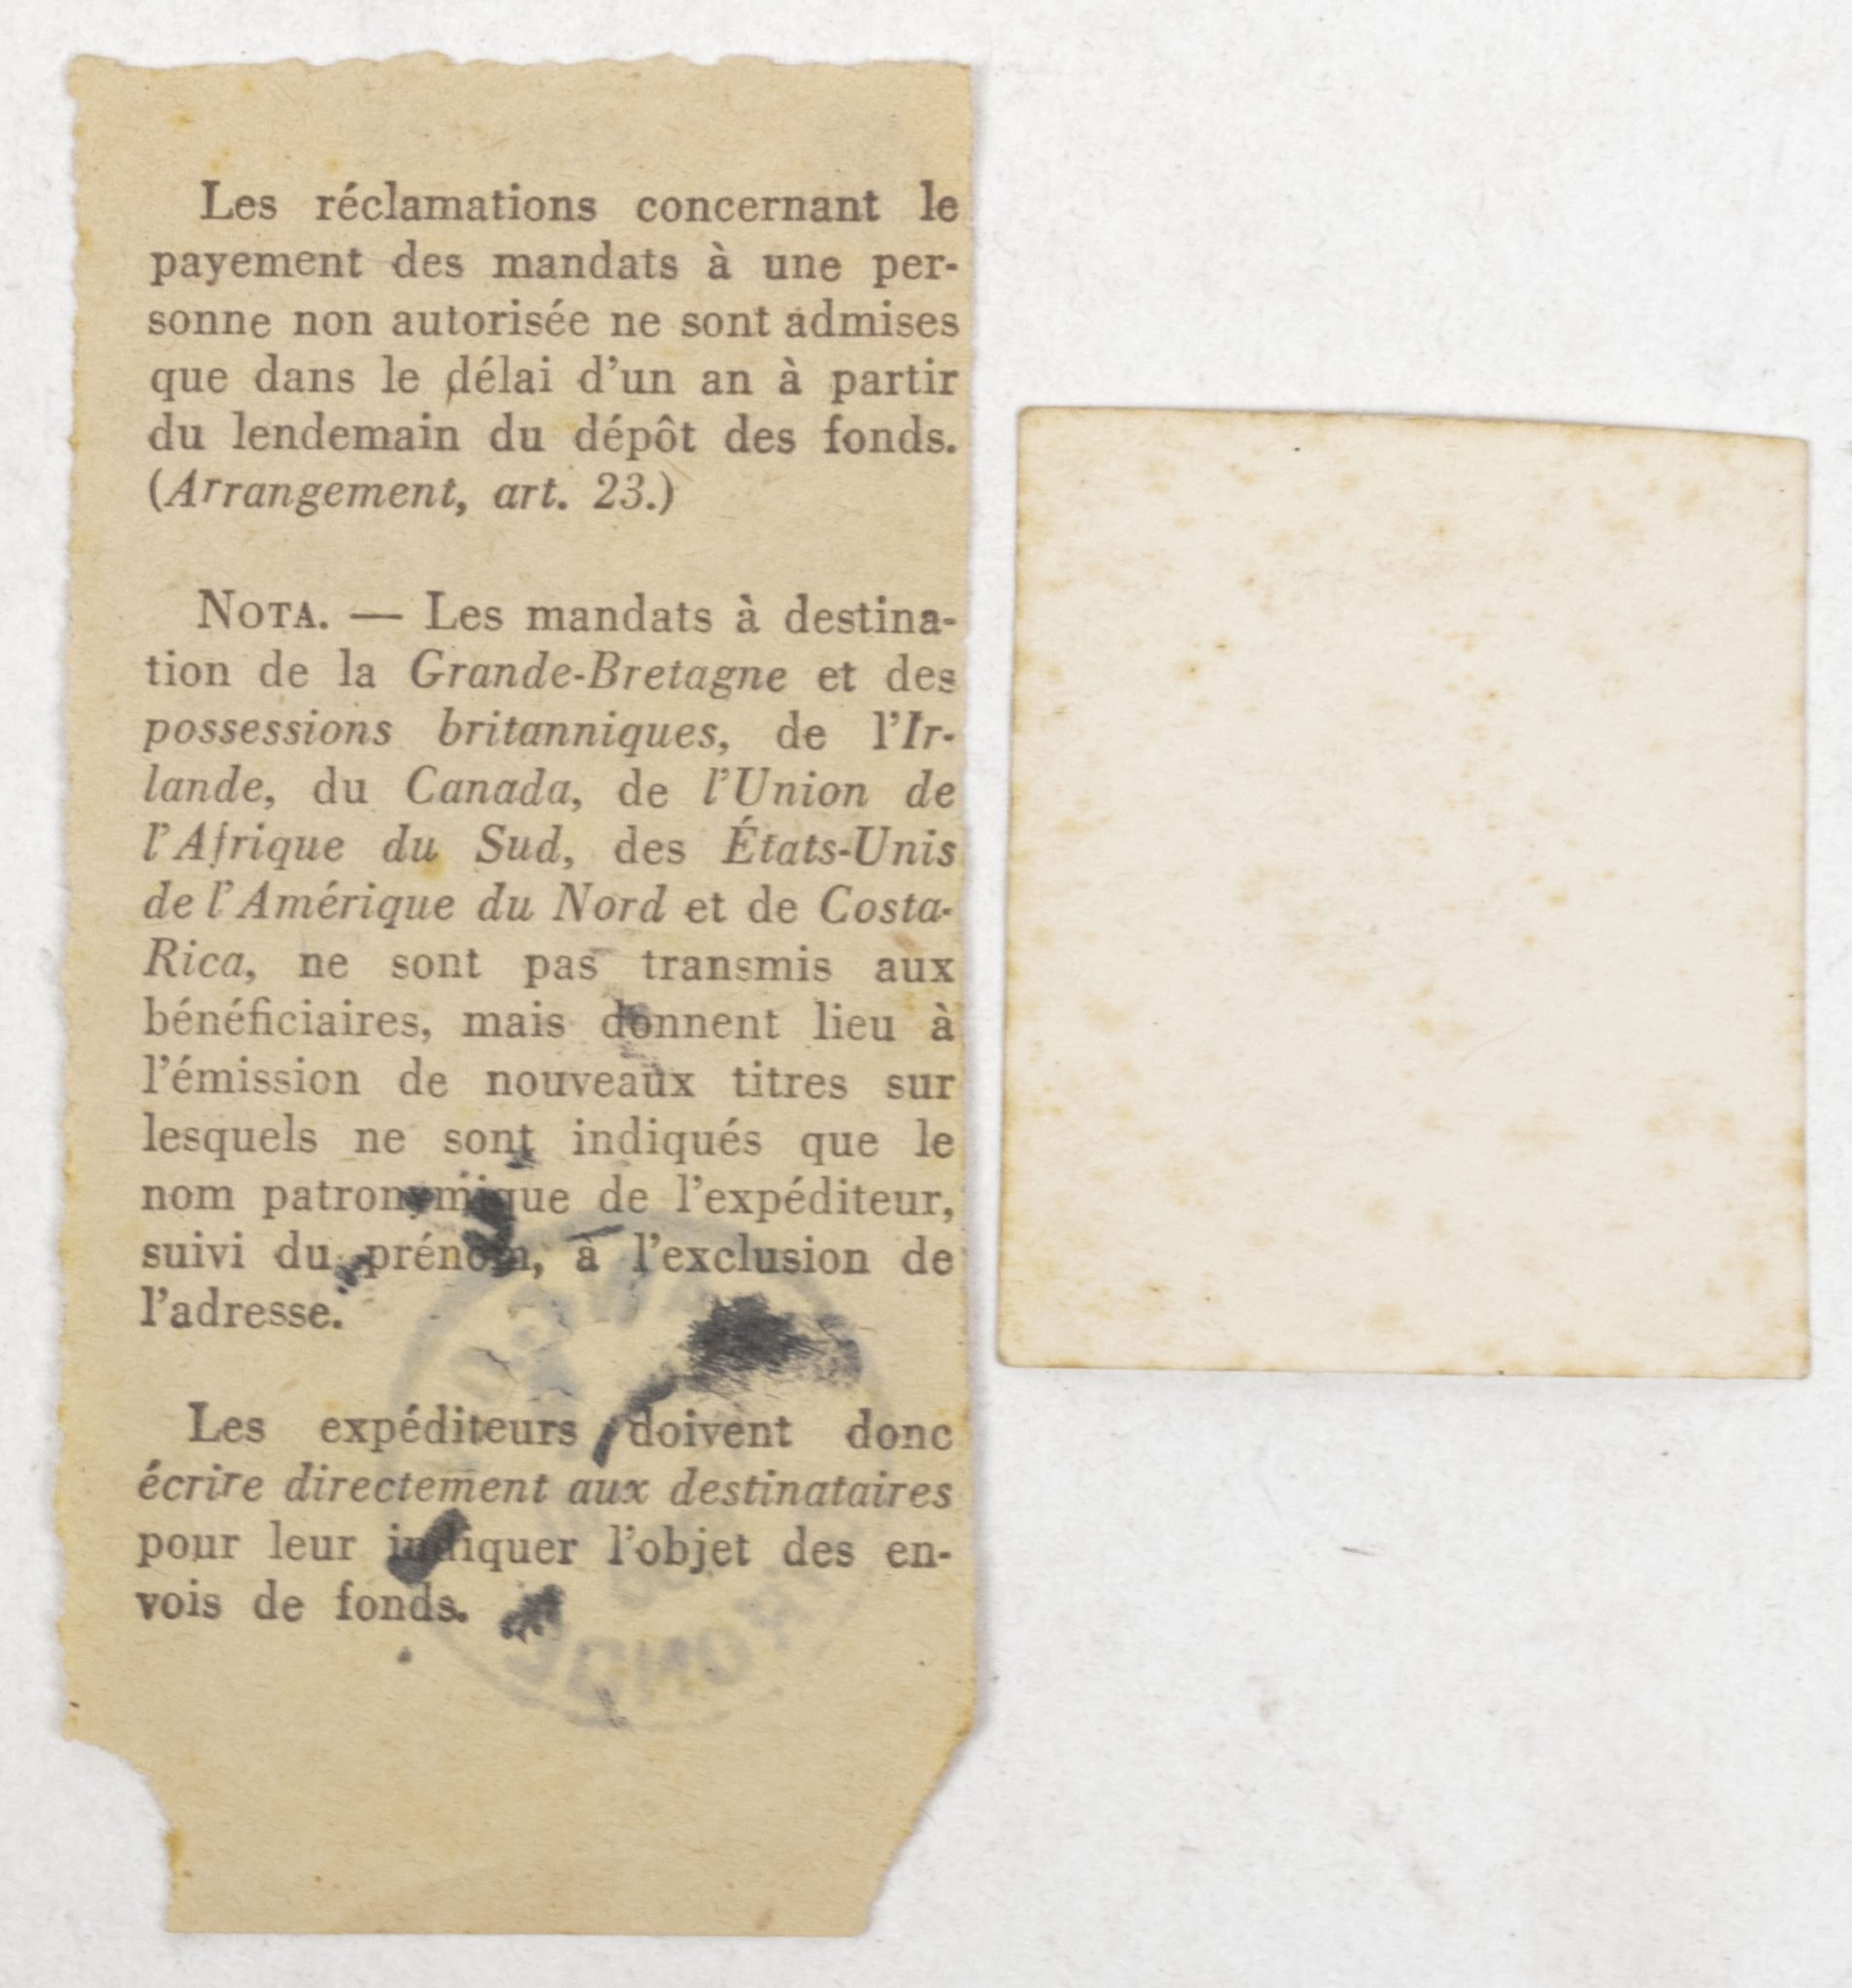 Les réclamations concernant le
payement des mandats à une per-
sonne non autorisée ne sont admises
que dans le délai d'un an à partir
du lendemain du dépôt des fonds.
(Arrangement, art. 23.)
NOTA. — Les mandats à destina-
tion de la Grande-Bretagne et des
possessions britanniques, de l'Ir-
lande, du Canada, de l'Union de
l'Afrique du Sud, des États-Unis
de l'Amérique du Nord et de Costa-
Rica, ne sont pas transmis aux
bénéficiaires, mais donnent lieu à
l'émission de nouveaux titres sur
lesquels ne sont indiqués que le
nom patronymique de l'expéditeur,
suivi du prénom, à l'exclusion de
l'adresse.
Les expéditeurs doivent donc
écrire directement aux destinataires
pour leur indiquer l'objet des en-
vois de fonds.